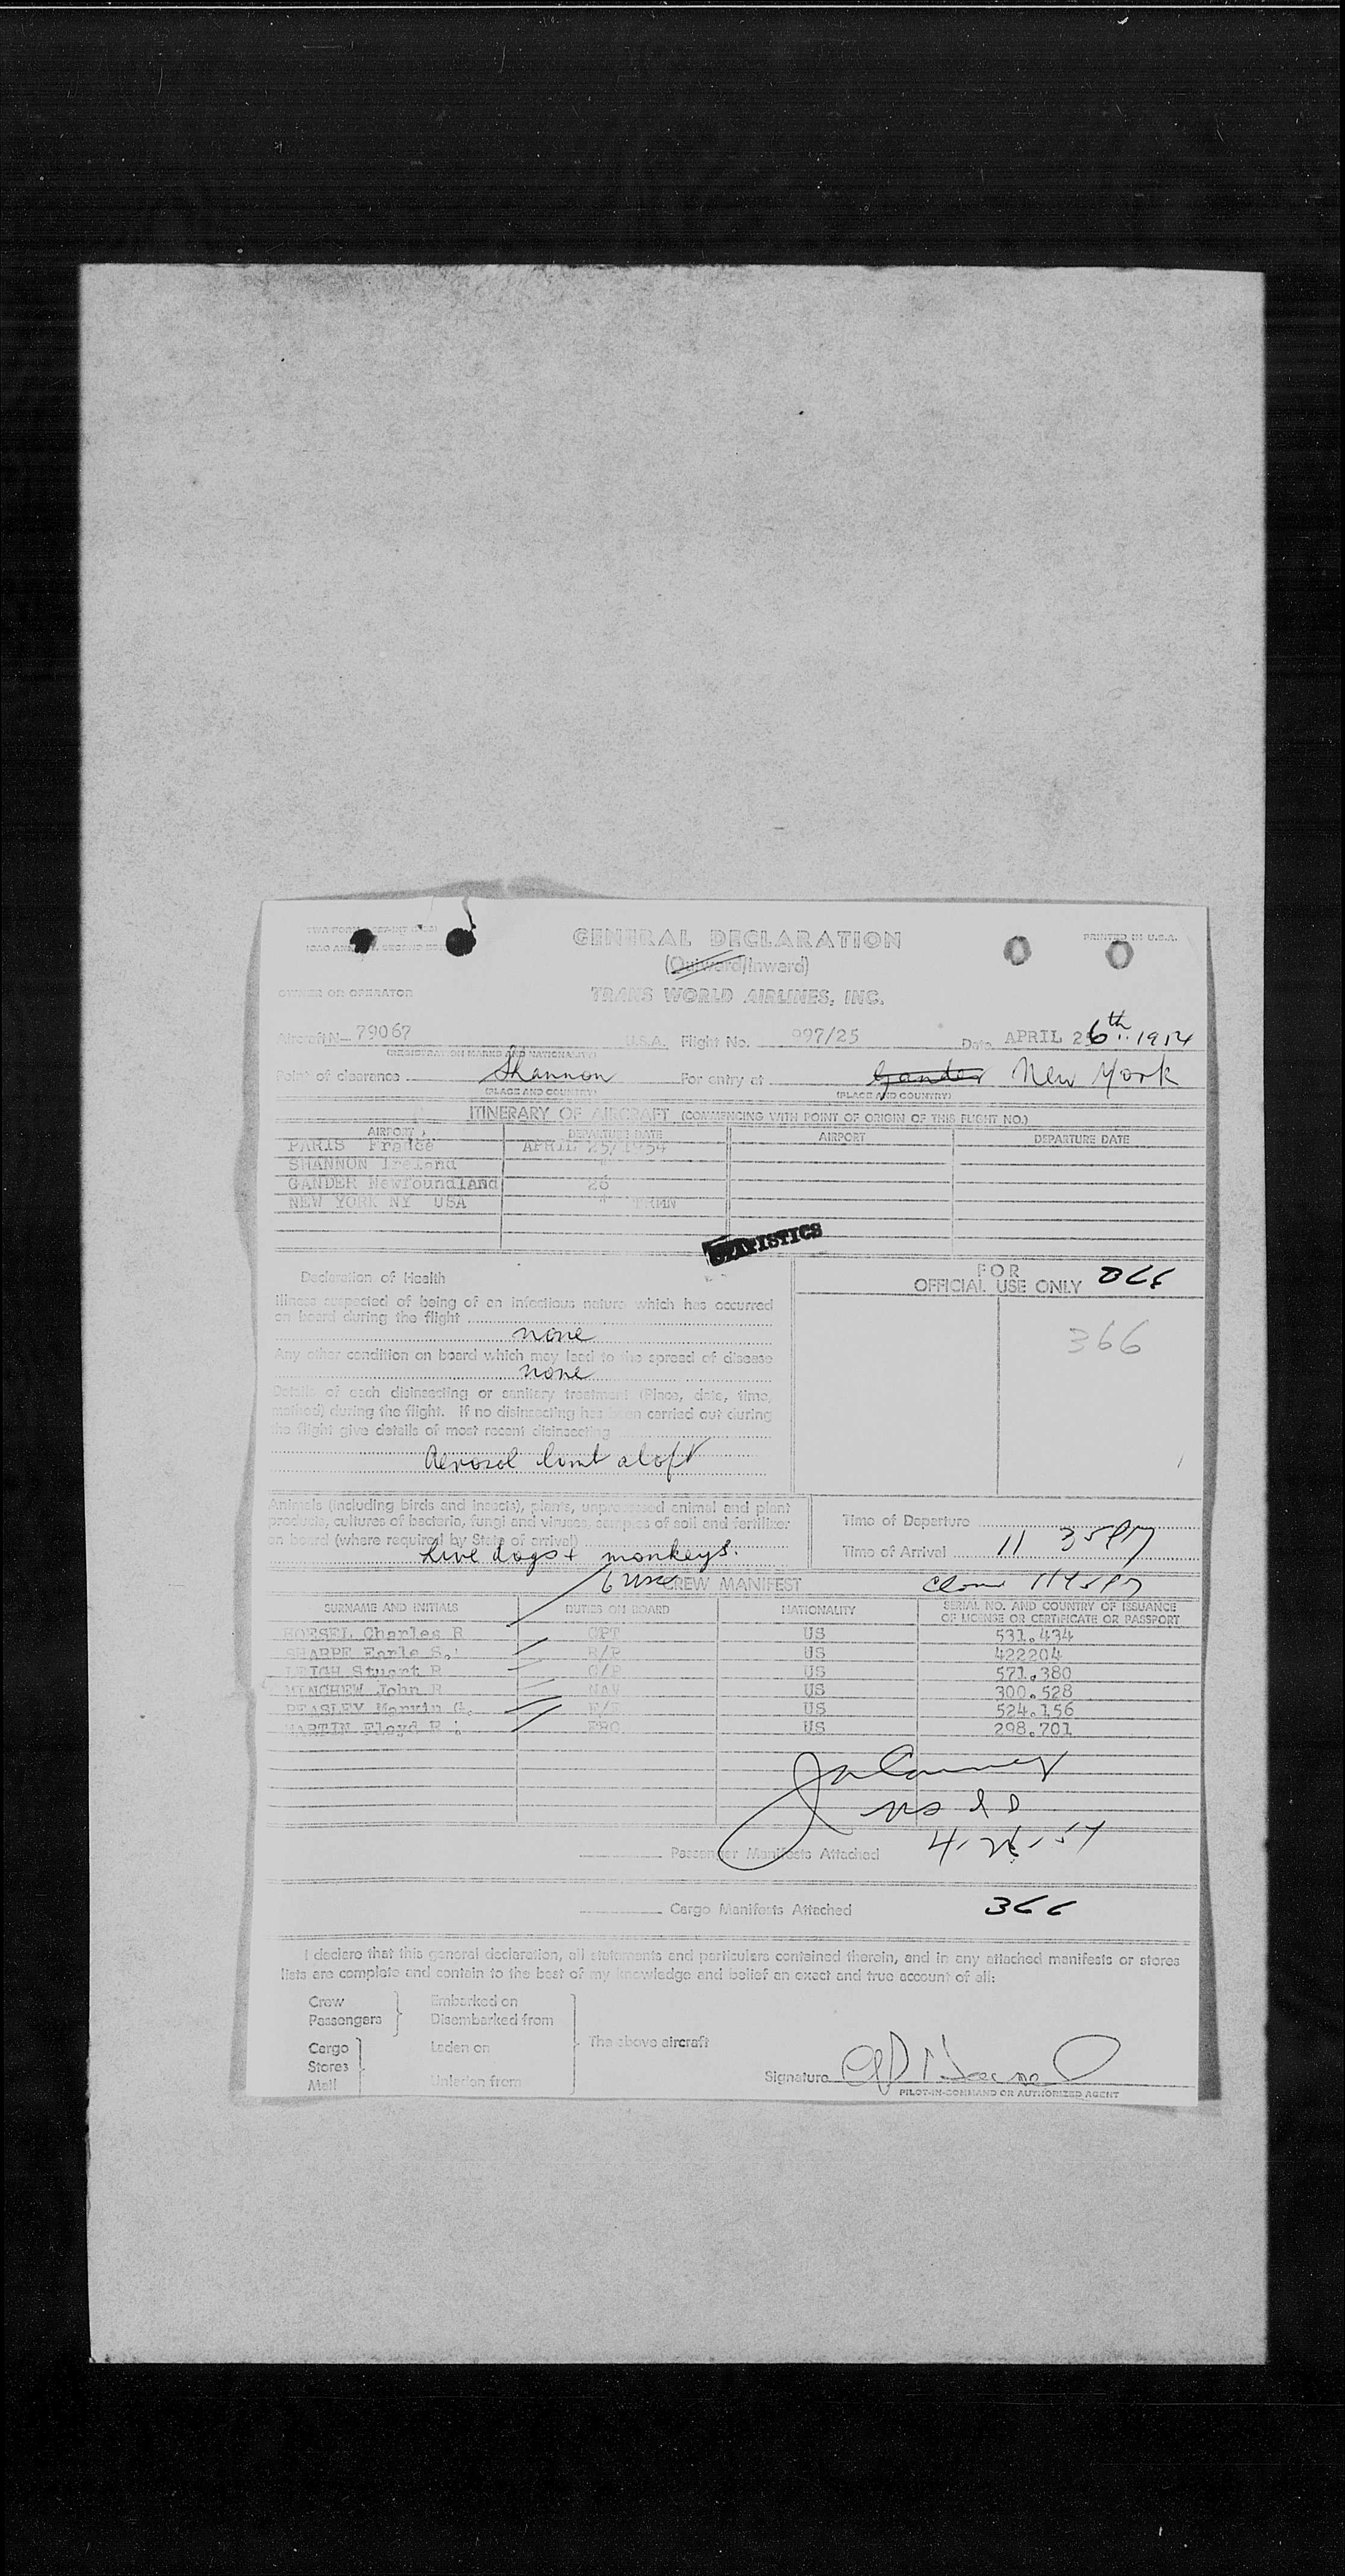 GENERAL DECLARATION
PRINTED IN U.S.A.
(Outward/Inward)
OWNER OR OPERATOR TRANS WORLD AIRLINES, INC.
Aircraft N- 79067 U.S.A. Flight No. 997/25 Date APRIL 26th 1954
(REGISTRATION MARKS AND NATIONALITY)
Point of clearance Shannon For entry at Gander New York
(PLACE AND COUNTRY) (PLACE AND COUNTRY)
ITINERARY OF AIRCRAFT (COMMENCING WITH POINT OF ORIGIN OF THIS FLIGHT NO.)
AIRPORT DEPARTURE DATE AIRPORT DEPARTURE DATE
PARIS France APRIL 25/1954
SHANNON Ireland "
GANDER Newfoundland 26
NEW YORK NY USA " TRMN
STATISTICS
Declaration of Health
FOR
OFFICIAL USE ONLY
Illness suspected of being of an infectious nature which has occurred
on board during the flight
none
366
Any other condition on board which may lead to the spread of disease
none
Details of each disinsecting or sanitary treatment (Place, date, time,
method) during the flight. If no disinsecting has been carried out during
the flight give details of most recent disinsecting
Aerosol bomb aloft
Animals (including birds and insects), plants, unprocessed animal and plant
products, cultures of bacteria, fungi and viruses, samples of soil and fertilizer
on board (where required by State of arrival)
Live dogs + monkeys.
Time of Departure
Time of Arrival 11 35 PM
6 USC CREW MANIFEST
1145 PM
SURNAME AND INITIALS DUTIES ON BOARD NATIONALITY SERIAL NO. AND COUNTRY OF ISSUANCE
OF LICENSE OR CERTIFICATE OR PASSPORT
HOESEL Charles R CPT US 531.434
SHARPE Earle S. R/P US 422204
LEIGH Stuart R C/P US 571.380
MINCHEW John R NAV US 300.528
PEASLEY Marvin G. F/E US 524.156
MARTIN Floyd E. FRO US 298.701
Passenger Manifests Attached
4-26-54
Cargo Manifests Attached
366
I declare that this general declaration, all statements and particulars contained therein, and in any attached manifests or stores
lists are complete and contain to the best of my knowledge and belief an exact and true account of all:
Crew Embarked on
Passengers Disembarked from
Cargo Laden on The above aircraft
Stores
Mail Unladen from
Signature
PILOT-IN-COMMAND OR AUTHORIZED AGENT